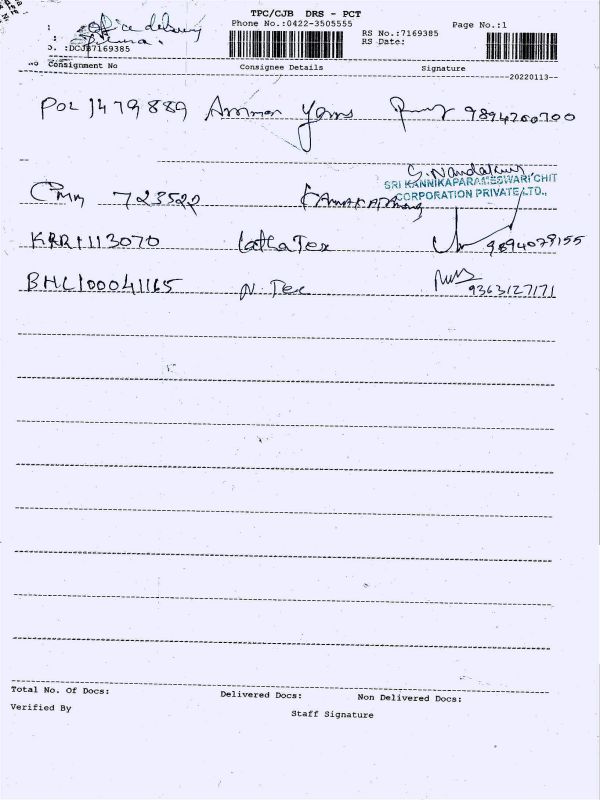 TPC/CJB DRS - PCT
Phone No.:0422-3505555
Page No.:1
RS No.:7169385
RS Date:
: office delivery
:
D. :DCJB7169385
No Consignment No Consignee Details Signature
20220113
POL 1479889 Amman Yarns 9894200700
S. Nandakumar
SRI KANNIKAPARAMESWARI CHIT
CORPORATION PRIVATE LTD.,
CMM 723522
KRR1113070 Latha Tex 9894079155
BHL100041165 N. Tex 9363127171
Total No. Of Docs: Delivered Docs: Non Delivered Docs:
Verified By
Staff Signature